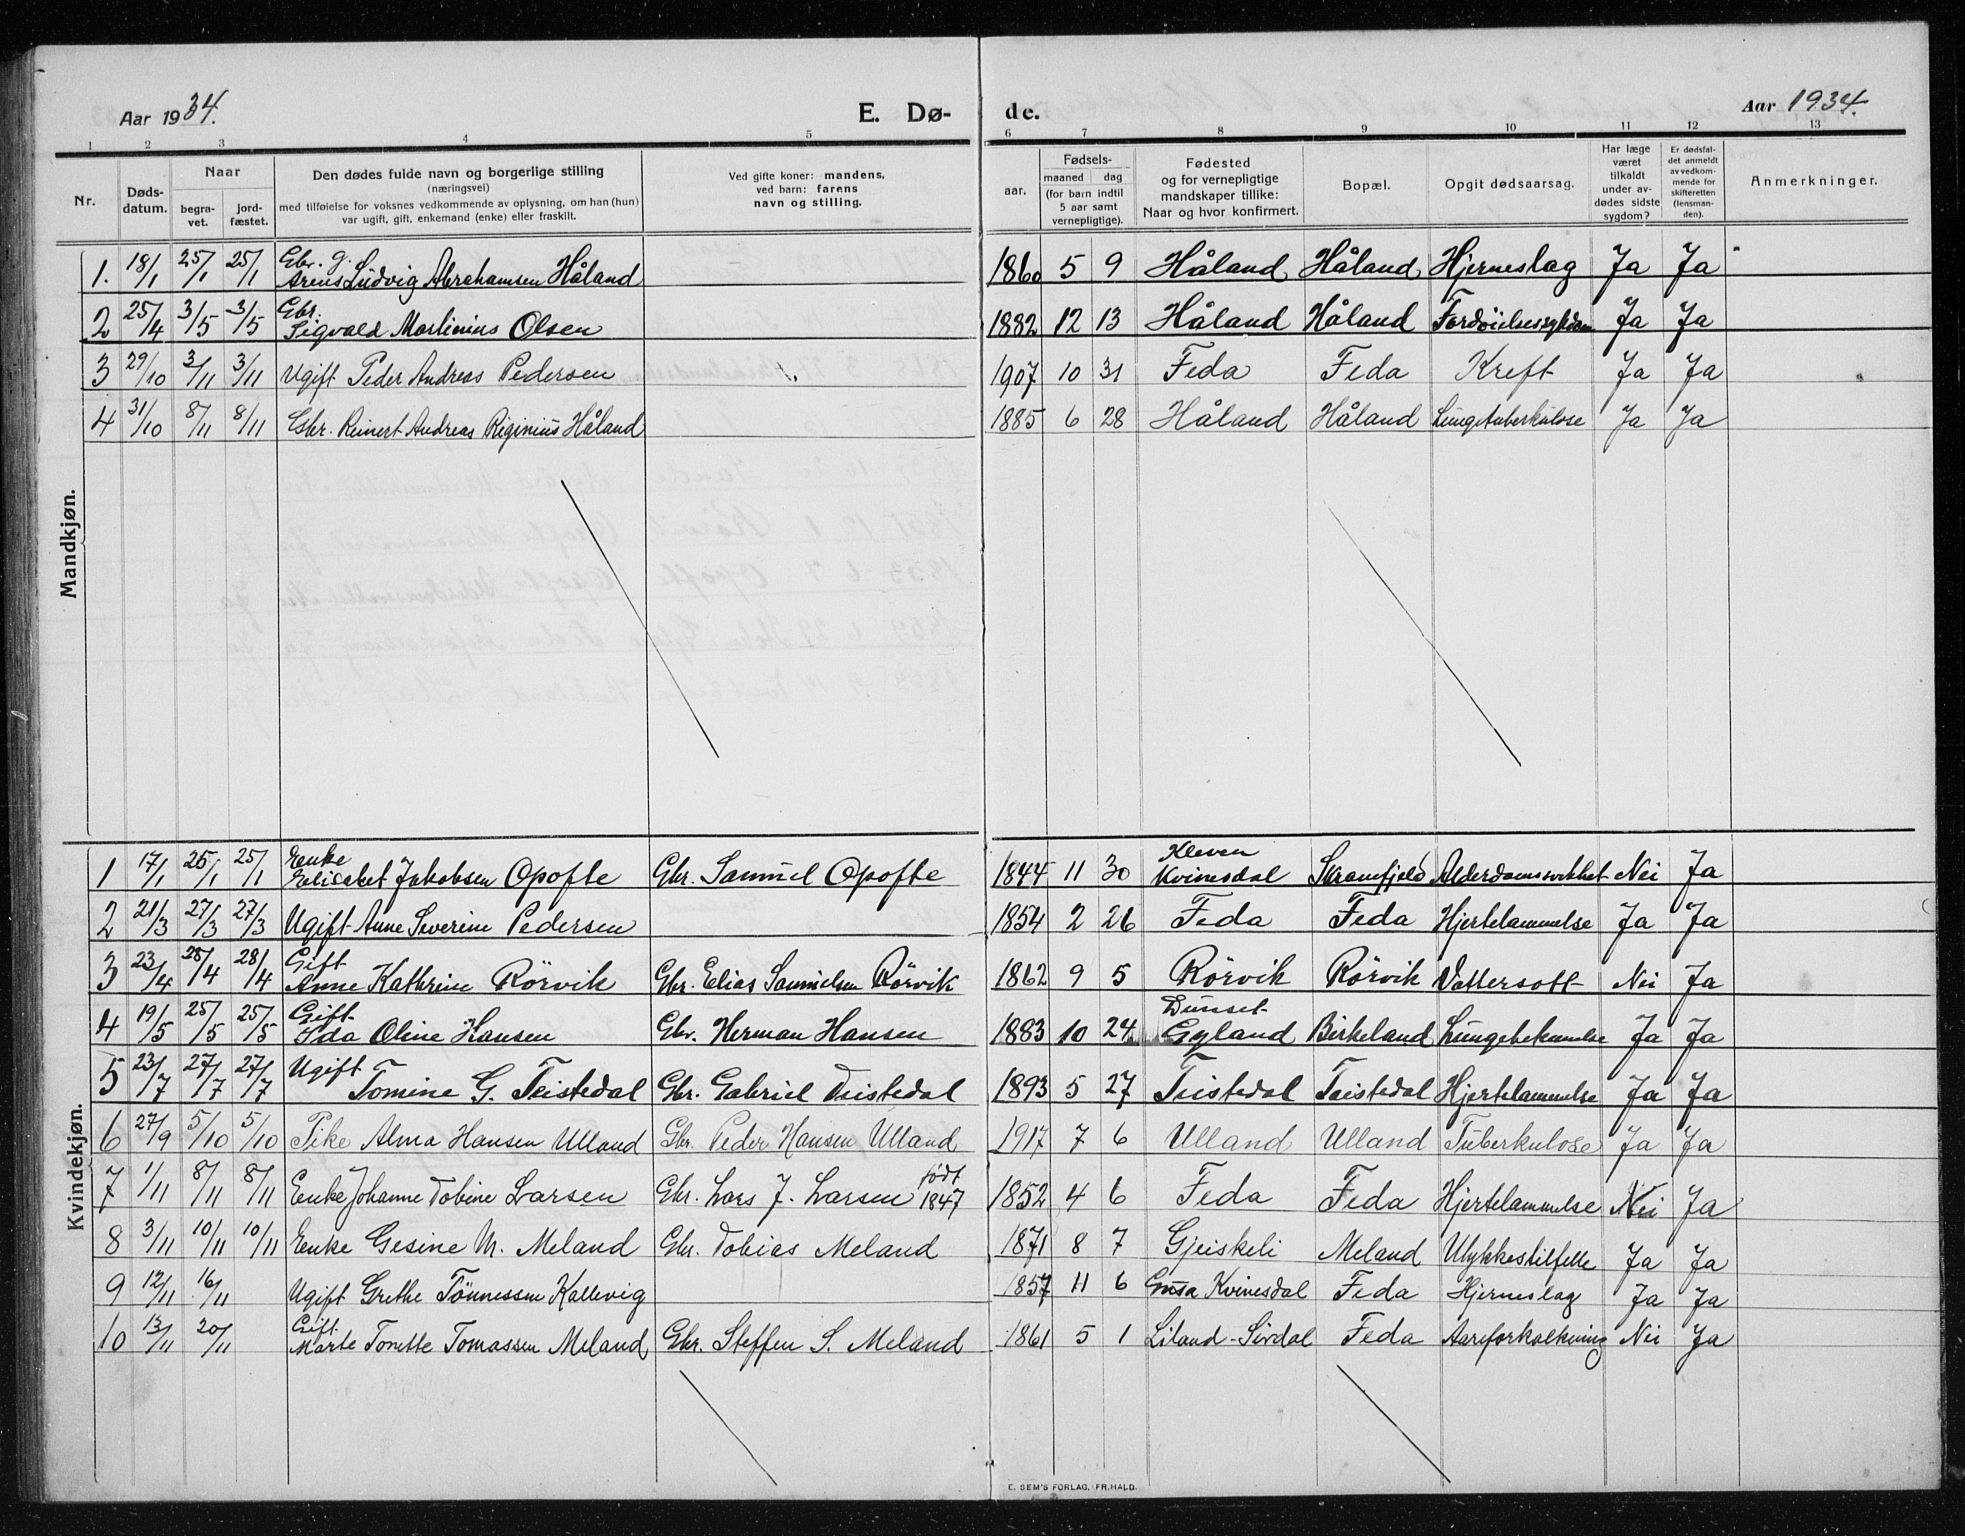 Aar 1934.
E. Dø-
de.
Aar 1934.
1 2 3 4 5 6 7 8 9 10 11 12 13
Nr.
Døds-
datum.
Naar
begra-
vet.
jord-
fæstet.
Den dødes fulde navn og borgerlige stilling
(næringsvei)
med tilføielse for voksnes vedkommende av oplysning, om han (hun)
var ugift, gift, enkemand (enke) eller fraskilt.
Ved gifte koner: mandens,
ved barn: farens
navn og stilling.
Fødsels-
aar.
maaned dag
(for barn indtil
5 aar samt
vernepligtige).
Fødested
og for vernepligtige
mandskaper tillike:
Naar og hvor konfirmert.
Bopæl.
Opgit dødsaarsag.
Har læge
været
tilkaldt
under av-
dødes sidste
sygdom?
Er dødsfal-
det anmeldt
av vedkom-
mende for
skifteretten
(lensman-
den).
Anmerkninger.
Mandkjøn.
Gbr. g.
1. 18/1 25/1 25/1 Arent Ludvig Abrahamsen Håland 1860 5 9 Håland Håland Hjerneslag Ja Ja
Gbr.
2 25/4 3/5 3/5 Sigvald Martinius Olsen 1882 12 13 Håland Håland Fordöielsessykdom Ja Ja
3 29/10 3/11 3/11 Ugift Peder Andreas Pedersen 1907 10 31 Feda Feda Kreft Ja Ja
4 31/10 8/11 8/11 Gbr. Reinert Andreas Riginius Håland 1885 6 28 Håland Håland Lungetuberkulose Ja Ja
Kvindekjøn.
Enke Kleven
1 17/1 25/1 25/1 Elisabet Jakobsen Opofte Gbr. Samuel Opofte 1844 11 30 Kvinesdal Skranefjeld Alderdomssvekhet Nei Ja
2 21/3 27/3 27/3 Ugift Anne Severine Pedersen 1854 2 26 Feda Feda Hjertelammelse Ja Ja
Gift
3 23/4 28/4 28/4 Anne Kathrine Rörvik Gbr. Elias Samuelsen Rörvik 1862 9 5 Rörvik Rörvik Vattersott Nei Ja
Gift Dunset
4 19/5 25/5 25/5 Ida Oline Hansen Gbr. Herman Hansen 1883 10 24 Gyland Birkeland Lungebetennelse Ja Ja
Ugift
5 23/7 27/7 27/7 Tomine G. Teistedal Gbr. Gabriel Teistedal 1893 5 27 Teistedal Teistedal Hjertelammelse Ja Ja
6 27/9 5/10 5/10 Pike Alma Hansen Ulland Gbr. Peder Hansen Ulland 1917 7 6 Ulland Ulland Tuberkulose Ja Ja
7 1/11 8/11 8/11 Enke Johanne Tobine Larsen Gbr. Lars J. Larsen født 1847 1852 4 6 Feda Feda Hjertelammelse Nei Ja
8 3/11 10/11 10/11 Enke Gesine M. Meland Gbr. Tobias Meland 1871 8 7 Gjeiskeli Meland Ulykkestilfelle Ja Ja
9 12/11 16/11 Ugift Grethe Tönnessen Kallevig 1857 11 6 Gusa Kvinesdal Feda Hjerneslag Ja Ja
Gift
10 13/11 20/11 Marte Tonette Tomassen Meland Gbr. Steffen S. Meland 1861 5 1 Liland-Sirdal Feda Aareforkalkning Nei Ja
E. SEM'S FORLAG, FR.HALD.